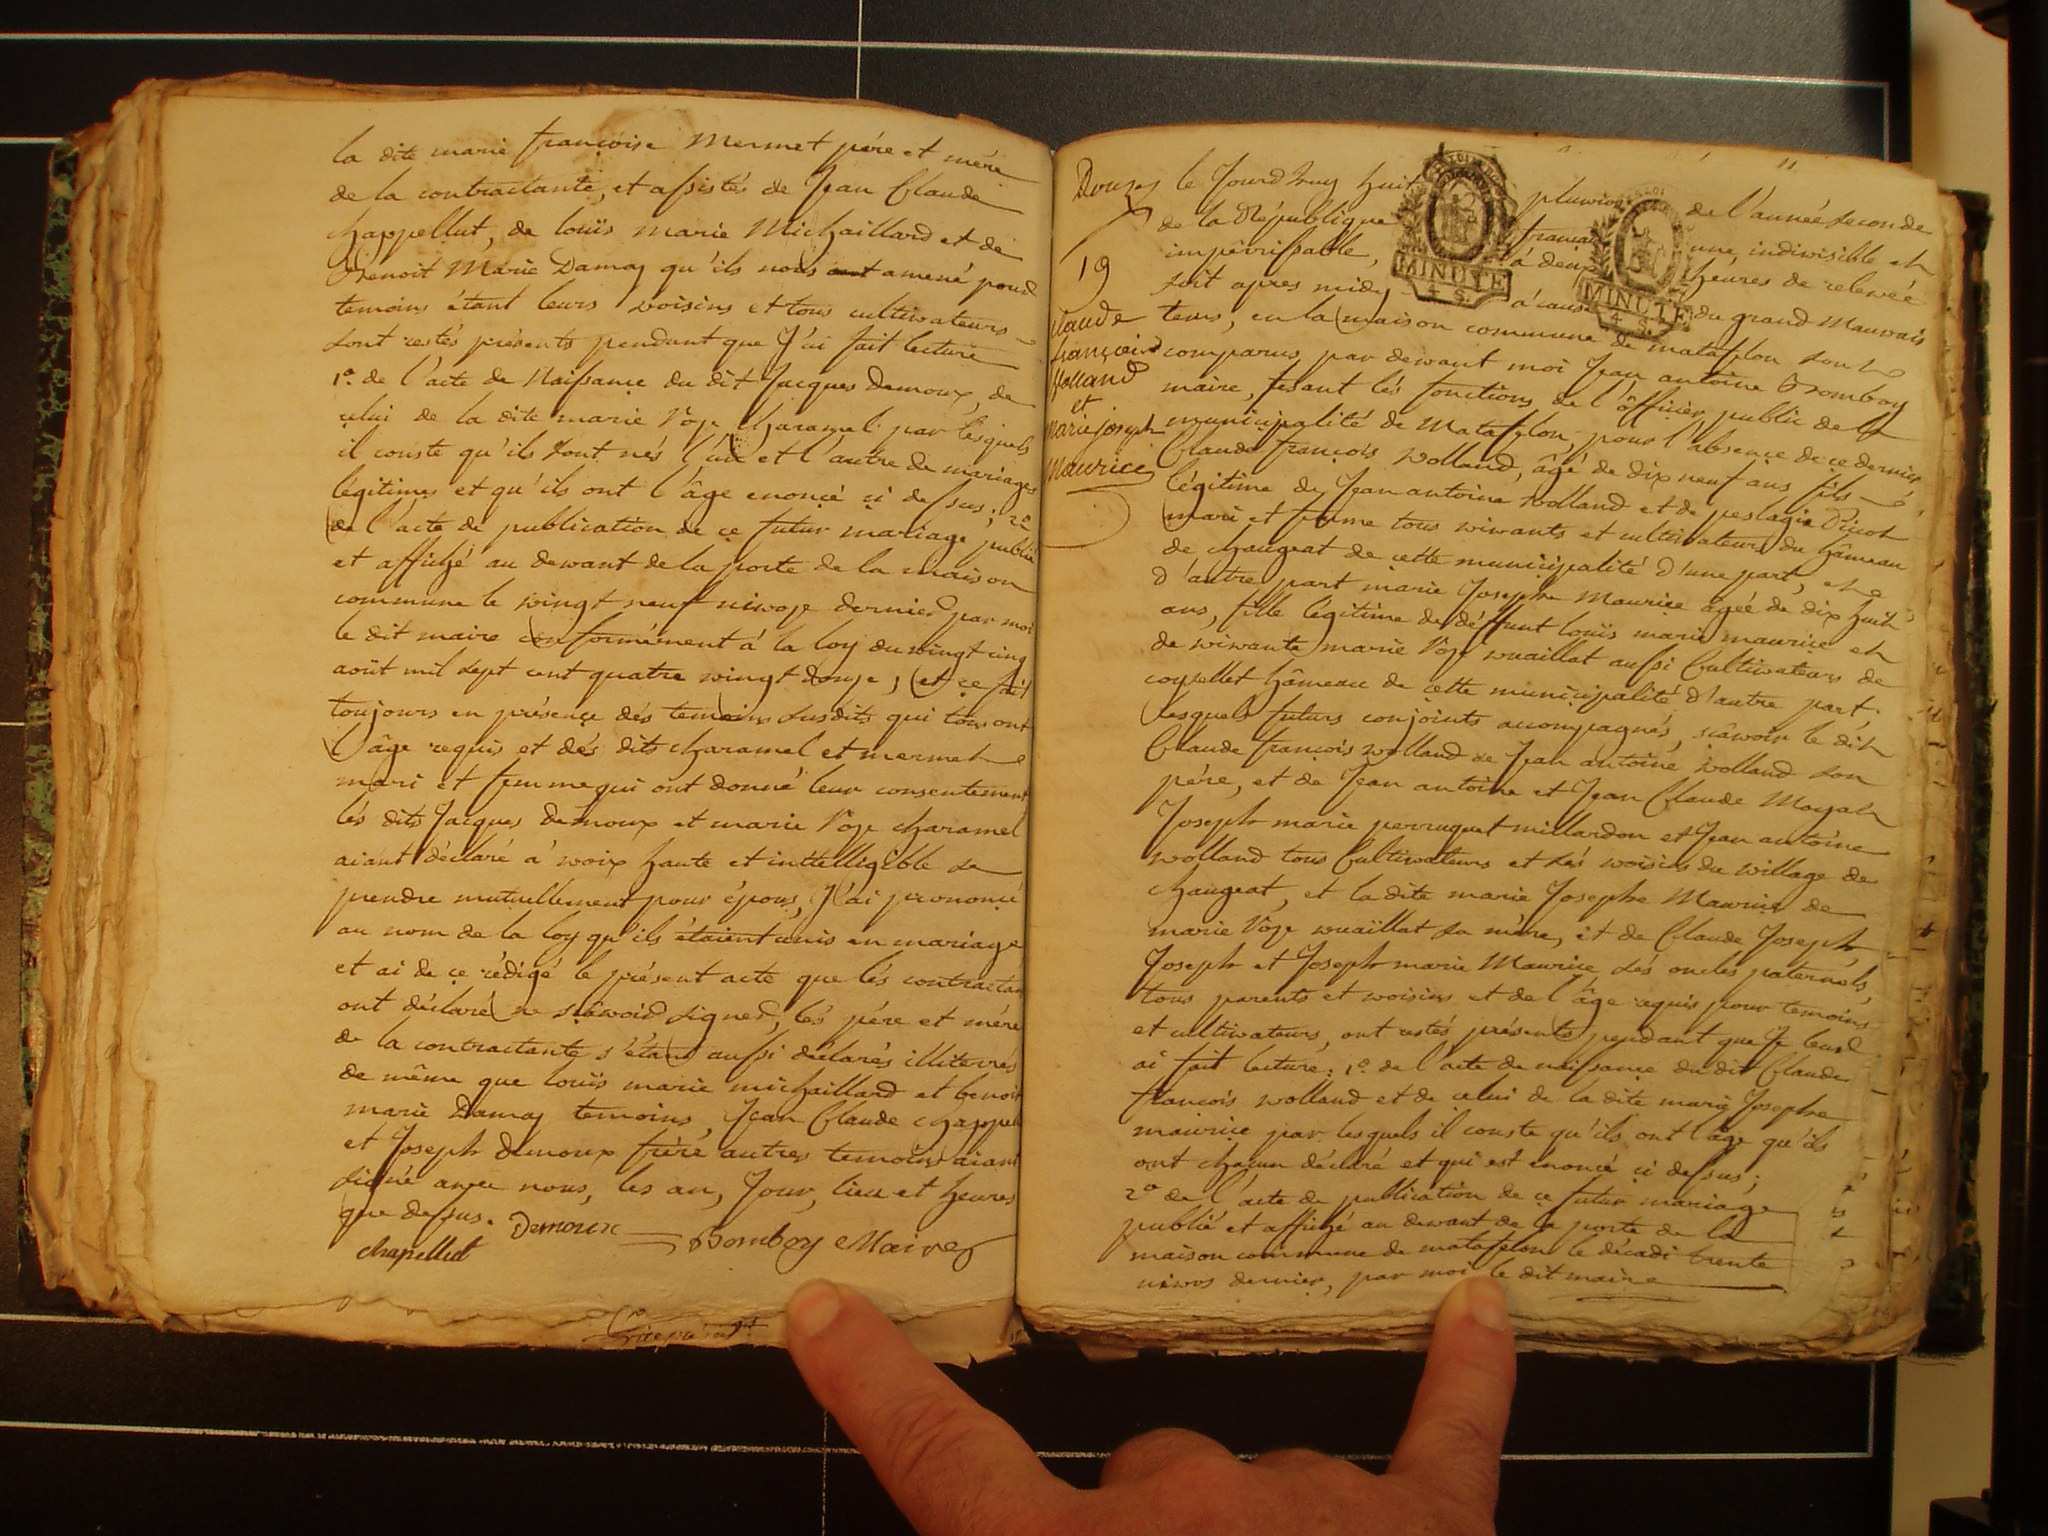 la dite marie françoise Mermet pére et mére
de la contractante, et assistés de Jean Claude
chappellut, de loüis marie Michaillard et de
Benoit Marie Damas qu'ils nous ont amené pour
temoins étant leurs woisins et tous cultiwateurs
sont restés présents pendant que J'ai fait lecture
1º. de l'acte de Naissance du dit Jacques Demoux, de
celui de la dite marie Rose Charamel par lesquels
il conste qu'ils sont nés l'un et l'autre de mariages
légitimes et qu'ils ont l'âge enoncé ci dessus; 2º
de l'acte de publication de ce futur mariage publié
et affiché au dewant de la porte de la maison
commune le wingt neuf niwose dernier par moi
le dit maire conformément à la loy du wingt cinq
août mil sept cent quatre wingt douze, et ce fait
toujours en présence dés temoins susdits qui tous ont
l'âge requis et dés dits charamel et mermet
mari et femme qui ont donné leur consentement
lés dits Jacques demoux et marie Rose charamel
aiant déclaré à woix haute et inttelligible se
prendre mutuellement pour épous, J'ai prononcé
au nom de la loy qu'ils étaient unis en mariage
et ai de ce rédigé le présent acte que lés contractan
ont déclaré ne sçâwoir signer, lés pére et mére
de la contractante s'étant aussi déclarés illiterrés
de même que loüis marie michaillard et benoit
marie Damas temoins, Jean Claude chappel
et Joseph demoux frére autres temoins aiant
signé awec nous, les an, Jour, lieu et heures
que dessus. Demoux Bomboy Maire
chapellut
Douze
19
claude
françois
Wolland
et
Marie joseph
Maurice
11
le Jourd'huy huit pluwios de l'année seconde
de la République françai une, indiwisible et
impérrissable, à deux heures de relewée
soit apres midy à cause du grand Mauwais
MINUTE
4 S.
MINUTE
4 S.
tems, en la maison commune de matafflon sont
comparus par dewant moi Jean antoine Bomboy
maire, fesant lés fonctions de l'officier public de la
municipalité de Matafflon, pour l'absence de ce dernier
Claude françois Wolland, âgé de dix neuf ans fils
légitime de Jean antoine Wolland et de peslagie Picot
mari et femme tous wiwants et cultiwateurs du hâmeau
de chaugeat de cette municipalité d'une part, et
d'autre part marie Josephe Maurice âgée de dix huit
ans, fille légitime de déffunt loüis marie maurice et
de wiwante marie Rose wuaillat aussi Cultiwateurs de
coysellet hâmeau de cette municipalité d'autre part.
lesquels futurs conjoints accompagnés, sçâwoir le dit
Claude françois wolland de Jean antoine wolland son
pére, et de Jean antoine et Jean Claude Moyat
Joseph marie perruquet millardon et Jean antoine
wolland tous Cultiwateurs et sés woisins du willage de
chaugeat, et la dite marie Josephe Maurice de
marie Rose wuaillat sa mére, et de Claude Joseph,
Joseph et Joseph marie Maurice sés oncles paternels,
tous parents et woisins et de l'âge requis pour temoins
et cultiwateurs, ont restés présents pendant que Je leur
ai fait lecture; 1º. de l'acte de naissance du dit Claude
françois wolland et de celui de la dite marie Josephe
maurice par lesquels il conste qu'ils ont l'âge qu'ils
ont chacun déclaré et qui est énoncé ci dessus;
2º de l'acte de publication de ce futur mariage
publié et affiché au dewant de la porte de la
maison commune de matafflon le décadi trente
niwos dernier, par moi le dit maire